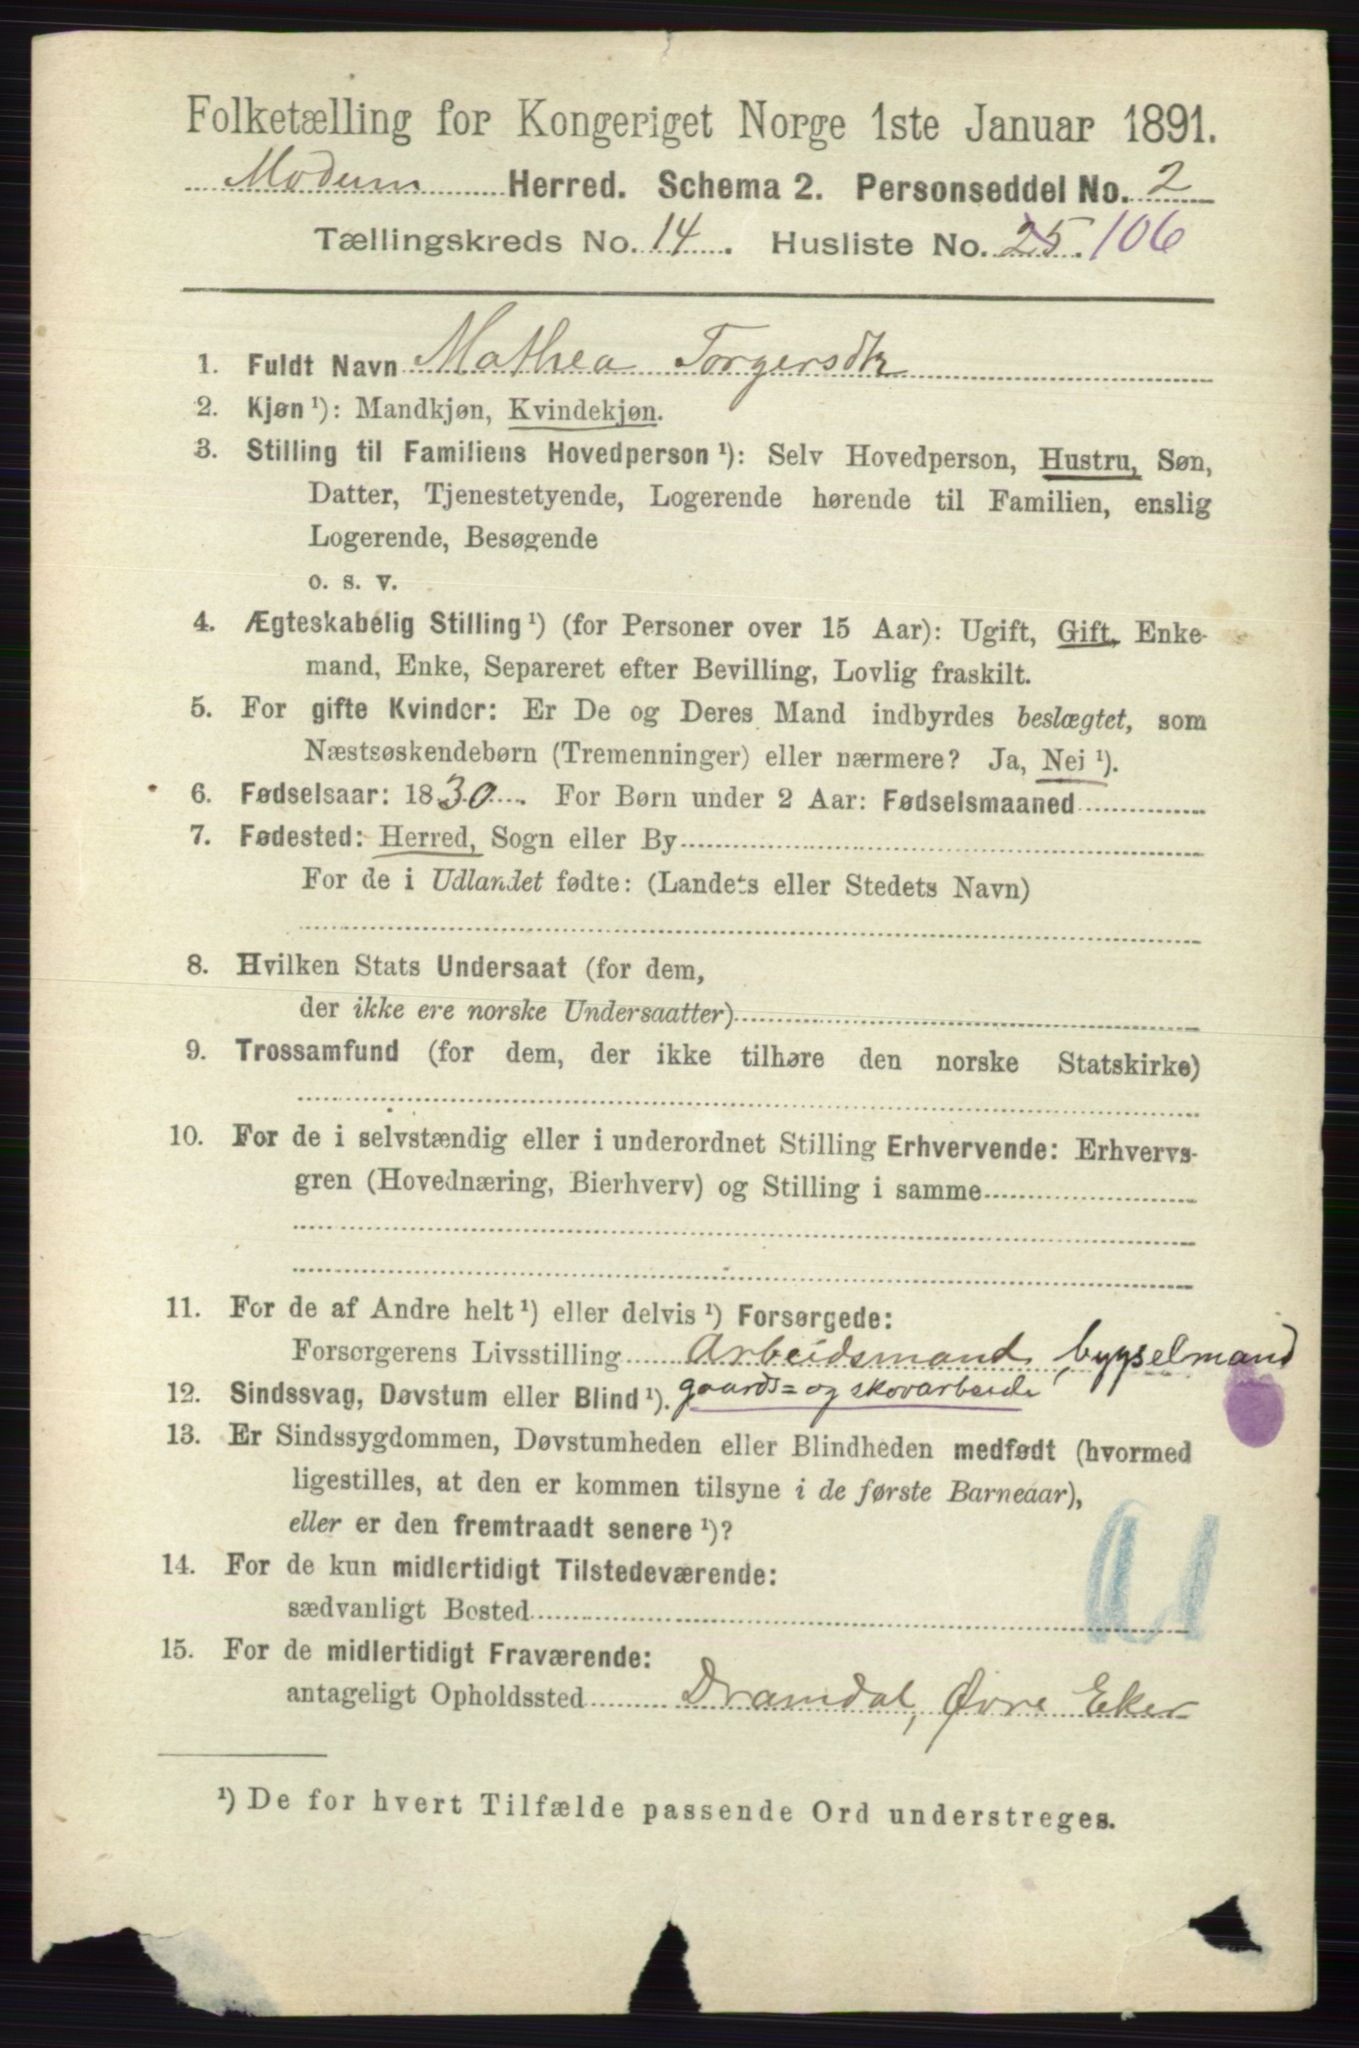 Folketælling for Kongeriget Norge 1ste Januar 1891.
Modum Herred. Schema 2. Personseddel No. 2
Tællingskreds No. 14. Husliste No. 25. 106
1. Fuldt Navn Mathea Torgersdtr
2. Kjøn ¹): Mandkjøn, Kvindekjøn.
3. Stilling til Familiens Hovedperson ¹): Selv Hovedperson, Hustru, Søn,
Datter, Tjenestetyende, Logerende hørende til Familien, enslig
Logerende, Besøgende
o. s. v.
4. Ægteskabelig Stilling ¹) (for Personer over 15 Aar): Ugift, Gift, Enke-
mand, Enke, Separeret efter Bevilling, Lovlig fraskilt.
5. For gifte Kvinder: Er De og Deres Mand indbyrdes beslægtet, som
Næstsøskendebørn (Tremenninger) eller nærmere? Ja, Nei ¹).
6. Fødselsaar: 1830. For Børn under 2 Aar: Fødselsmaaned
7. Fødested: Herred, Sogn eller By
For de i Udlandet fødte: (Landets eller Stedets Navn)
8. Hvilken Stats Undersaat (for dem,
der ikke ere norske Undersaatter)
9. Trossamfund (for dem, der ikke tilhøre den norske Statskirke)
10. For de i selvstændig eller i underordnet Stilling Erhvervende: Erhvervs-
gren (Hovednæring, Bierhverv) og Stilling i samme
11. For de af Andre helt ¹) eller delvis ¹) Forsørgede:
Forsørgerens Livsstilling Arbeidsmand, bygselmand
12. Sindssvag, Døvstum eller Blind ¹). gaards= og skovarbeide
13. Er Sindssygdommen, Døvstumheden eller Blindheden medfødt (hvormed
ligestilles, at den er kommen tilsyne i de første Barneaar),
eller er den fremtraadt senere ¹)?
14. For de kun midlertidigt Tilstedeværende:
sædvanligt Bosted
15. For de midlertidigt Fraværende:
antageligt Opholdssted Dramdal, Øvre Eker
¹) De for hvert Tilfælde passende Ord understreges.